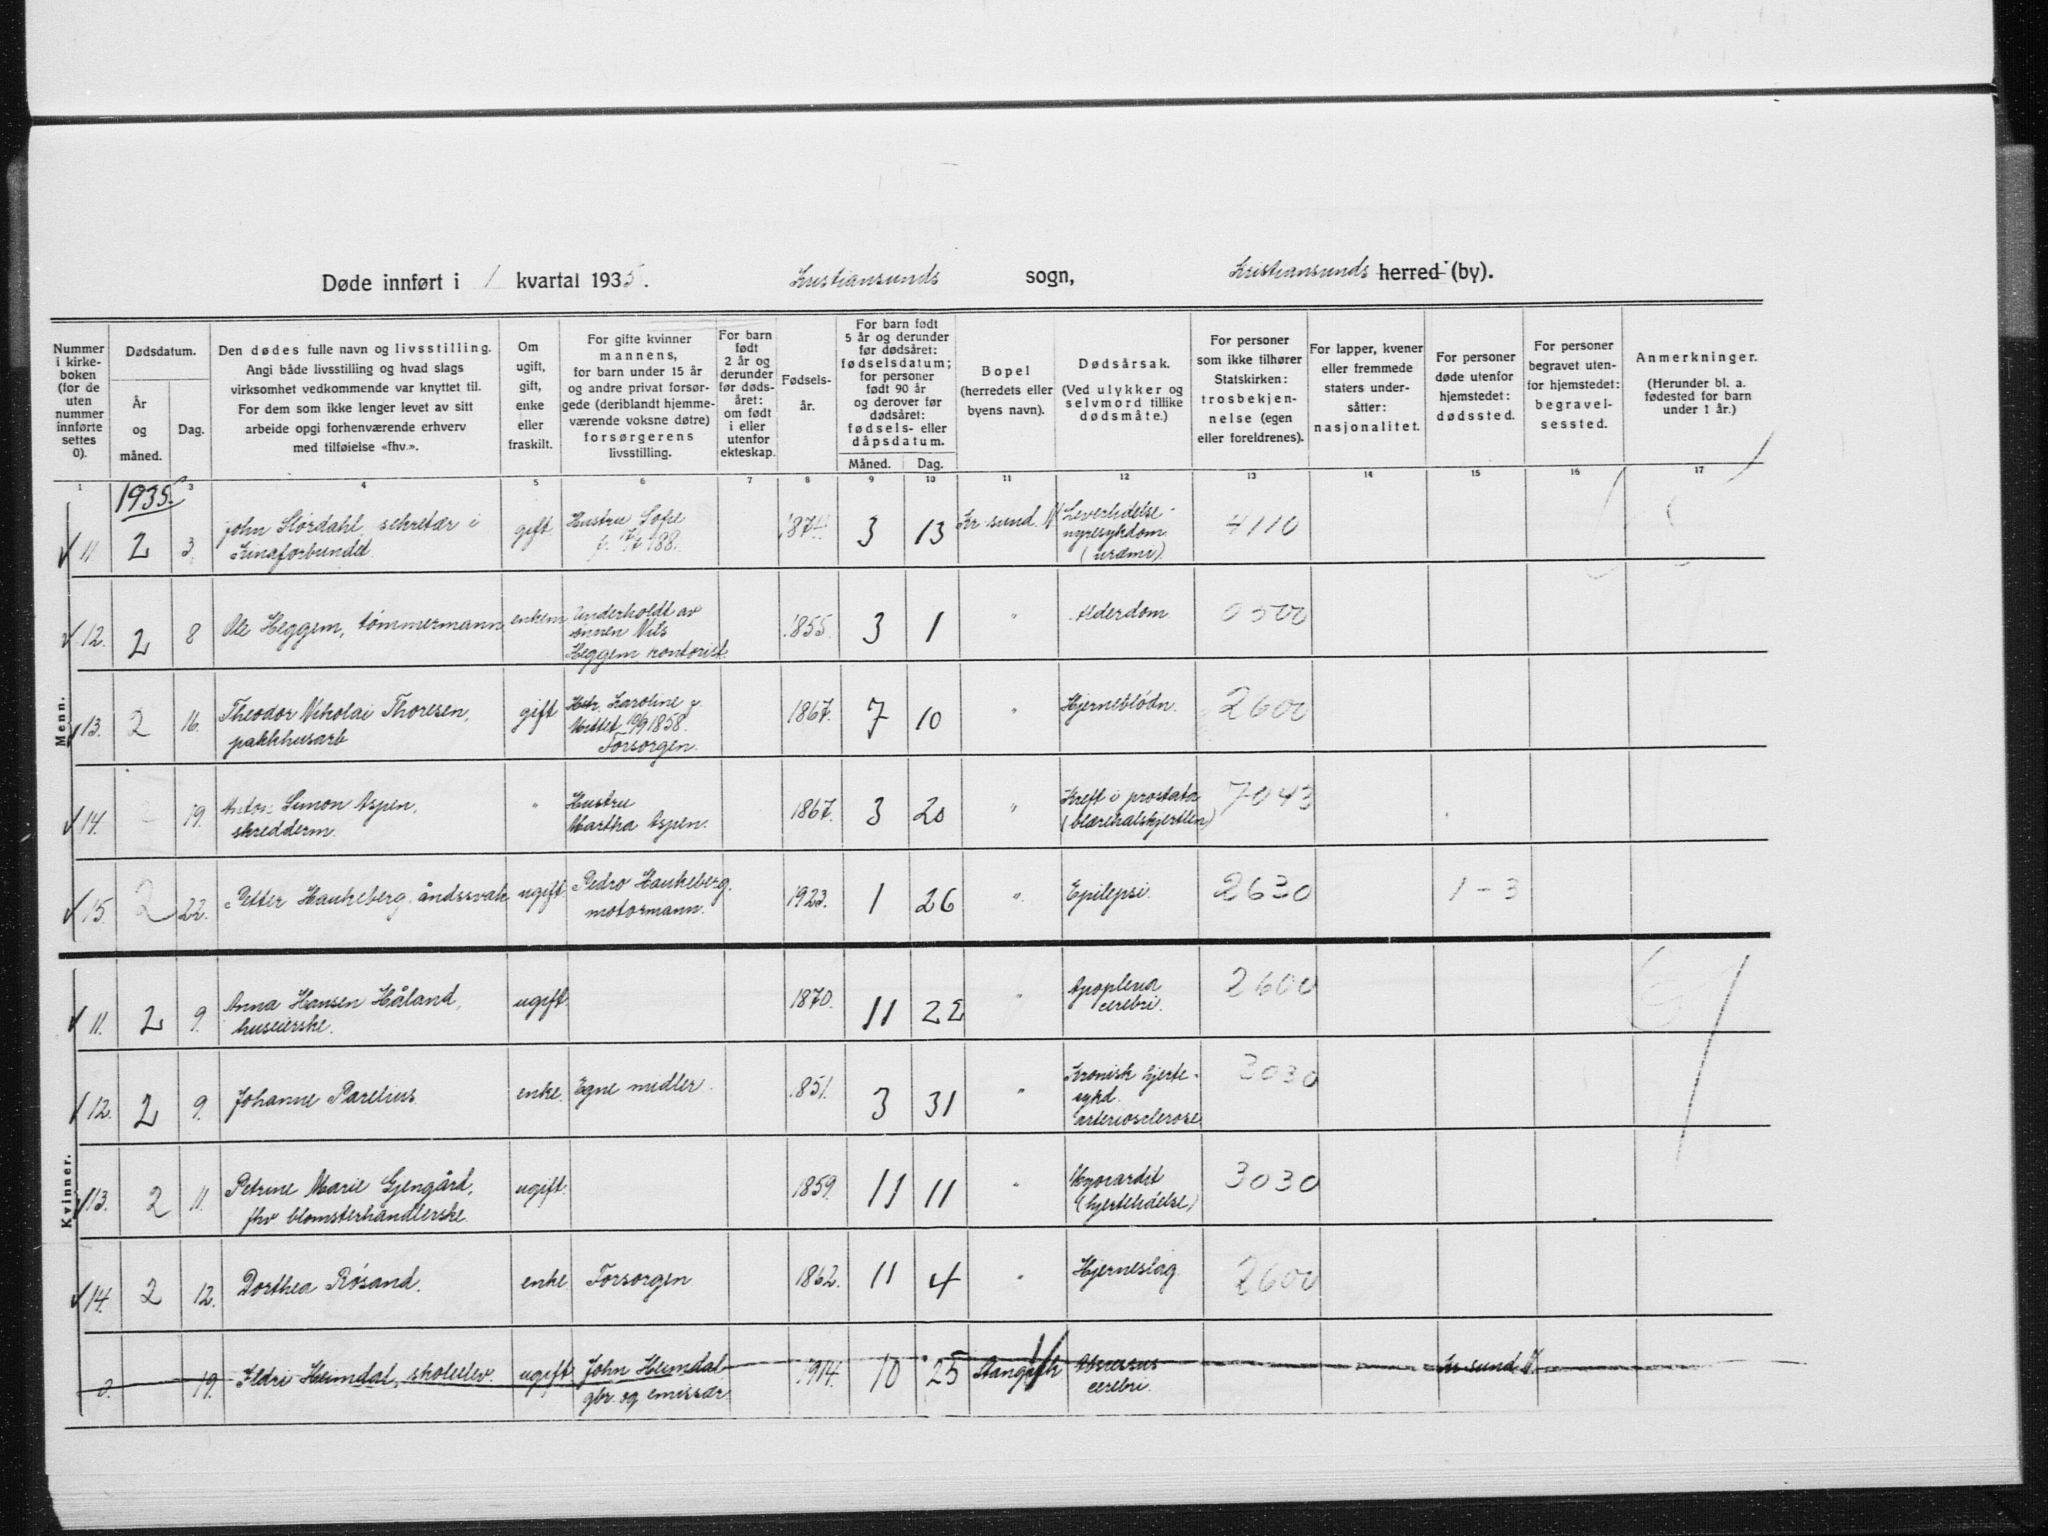 Døde innført i 1 kvartal 1935. Kristiansunds sogn, Kristiansunds herred (by).
Nummer i kirkeboken (for de uten nummer innførte settes 0).
Dødsdatum.
År og måned.
Dag.
Den dødes fulle navn og livsstilling.
Angi både livsstilling og hvad slags
virksomhet vedkommende var knyttet til.
For dem som ikke lenger levet av sitt
arbeide opgi forhenværende erhverv
med tilføielse «fhv.».
Om ugift, gift, enke eller fraskilt.
For gifte kvinner
mannens,
for barn under 15 år
og andre privat forsør-
gede (deriblandt hjemme-
værende voksne døtre)
forsørgerens
livsstilling.
For barn født 2 år og derunder før døds- året: om født i eller utenfor ekteskap.
Fødsels- år.
For barn født
5 år og derunder
før dødsåret:
fødselsdatum;
for personer
født 90 år
og derover før
dødsåret:
fødsels- eller
dåpsdatum.
Måned. Dag.
Bopel
(herredets eller
byens navn).
Dødsårsak.
(Ved ulykker og
selvmord tillike
dødsmåte.)
For personer
som ikke tilhører
Statskirken:
trosbekjen-
nelse (egen
eller foreldrenes).
For lapper, kvener
eller fremmede
staters under-
såtter:
nasjonalitet.
For personer
døde utenfor
hjemstedet:
dødssted.
For personer
begravet uten-
for hjemstedet:
begravel-
sessted.
Anmerkninger.
(Herunder bl. a.
fødested for barn
under 1 år.)
1 3 4 5 6 7 8 9 10 11 12 13 14 15 16 17
1935
Menn.
11 2 3. John Størdahl, sekretær i gift. Hustru Sofie 3 13 Kr sund. N Leverlidelse -
nyresykdom
(uræmi). 4110
12. 2 8 Ole Heggem, tømmermann, enkem. Underholdt av
sønnen Nils
Heggem kontorist. 1855. 3 1 " Alderdom 0500
13. 2 16. Theodor Nikolai Thoresen,
pakkhusarb gift Karoline f.
10/9 1858.
Forsorgen. 1867. 7 10 " Hjerneblødn. 2600
14. 2 19. Anton Simon Aspen,
skredderm. " Hustru
Martha Aspen. 1867. 3 20 " Kreft i prostata
(blærehalskjertlen) 7043
15. 2 22. Petter Haukeberg, åndssvak ugift. Pedro Haukeberg.
motormann. 1923. 1 26 " Epilepsi. 2630 1-3
Kvinner.
11. 2 9. Anna Hansen Håland,
huseierske. ugift 1870. 11 22 " Apoplexia
cerebri. 2600
12. 2 9. Johanne Parelius. enke. Egne midler. 1851. 3 31 " Kronisk hjerte-
sykd.
arteriosclerose. 3030
13. 2 11. Petrine Marie Gjengård,
fhv blomsterhandlerske. ugift. 1859. 11 11 " Myocardit
(hjertelidelse) 3030
14. 2 12. Dorthea Røsand. enke Forsorgen 1862. 11 4 " Hjerneslag 2600
0. 19. Ildri Heimdal, skoleelev. ugift John Heimdal
gbr. og emissær. 1914. 10 25 Stangvik Abscessus
cerebri. Kr sund N.